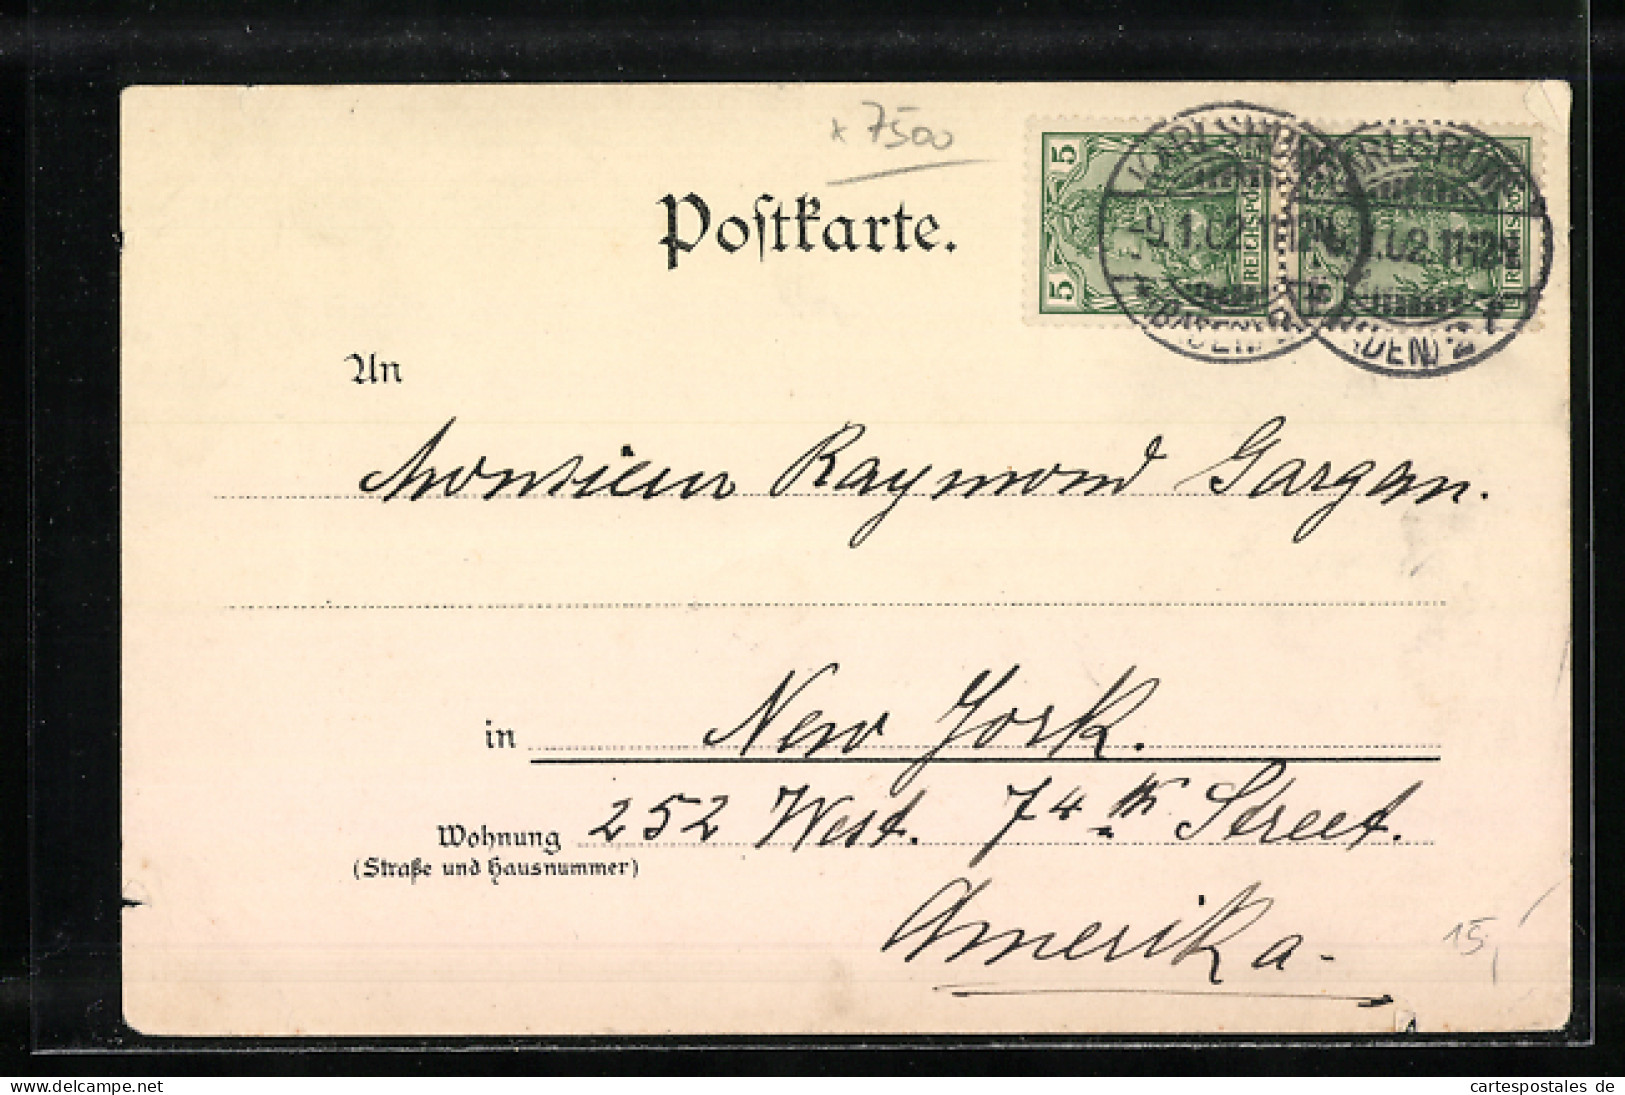 x 7500
Postkarte.
5 5 REICHSPOST
KARLSRUHE
20.1.02.11-12N.
(BADEN) 2
KARLSRUHE
1.02.11-12N.
(BADEN) 2
An
Monsieur Raymond Gargan.
in New York.
Wohnung 252 West. 74th Street.
(Straße und Hausnummer)
Amerika.
15,
delcampe.net
cartespostales de